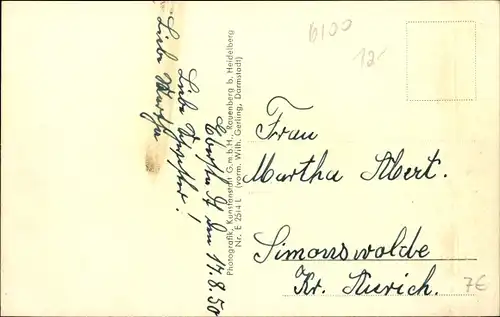 b100
12.-
Frau
Martha Abert.
Simonswolde
Kr. Aurich.
7€
Photografik, Kunstanstalt G.m.b.H., Rauenberg b. Heidelberg
(vorm. Wilh. Gerling, Darmstadt)
Nr. E 2514 L
den 17.8.50
Liebe
Liebe Martha